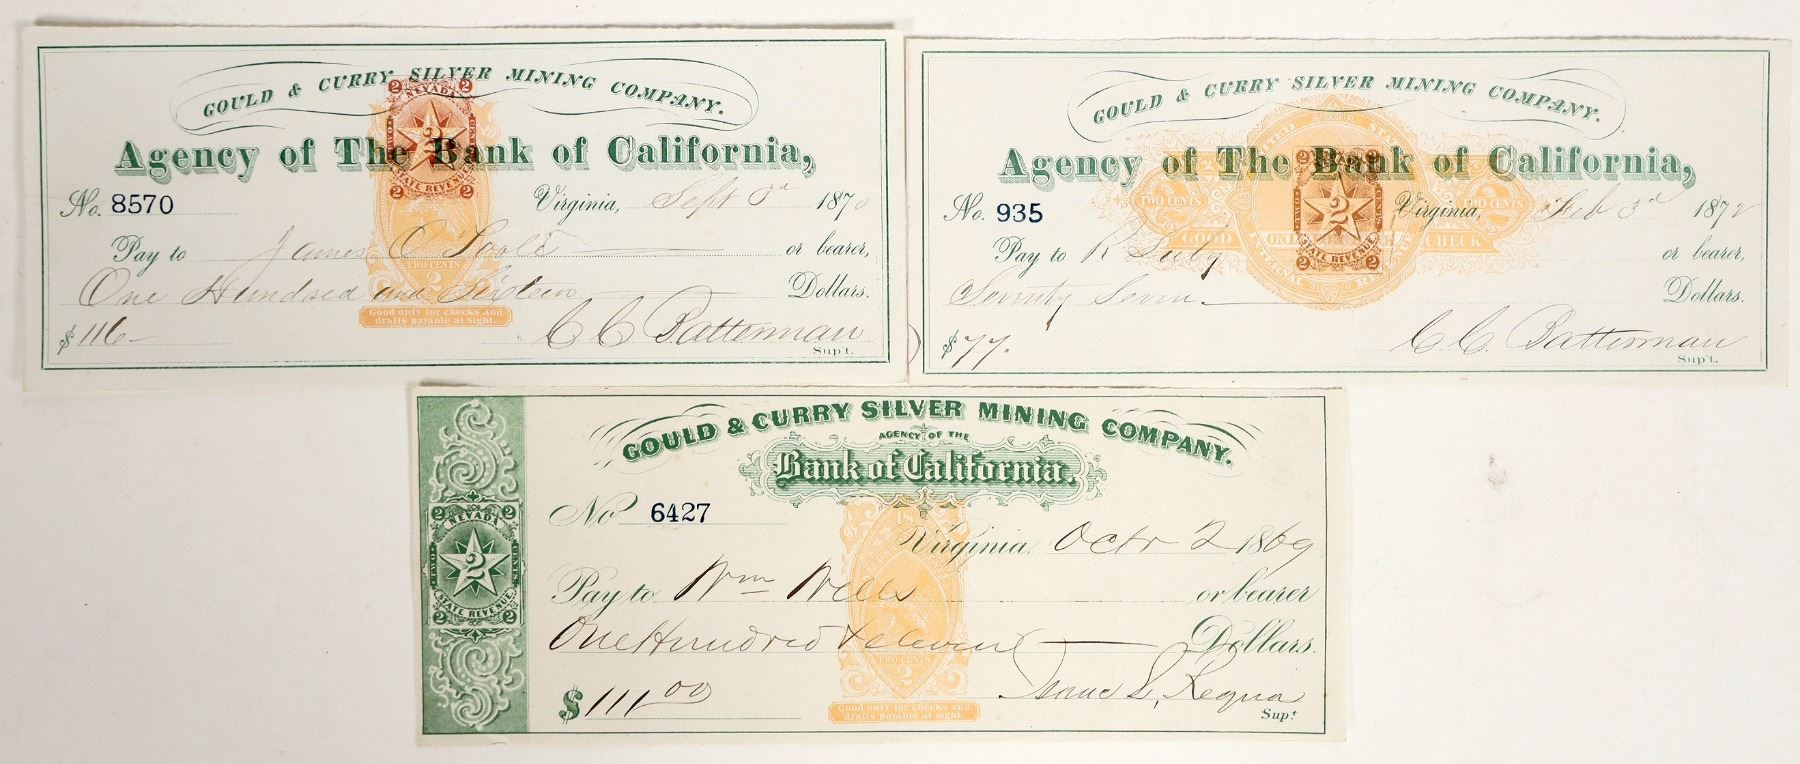 GOULD & CURRY SILVER MINING COMPANY.
Agency of The Bank of California,
2 NEVADA 2
TWO 2 CENTS
2 STATE REVENUE 2
No. 8570 Virginia, Sept 3d 1870
Pay to James C Poole or bearer,
One Hundred and Sixteen Dollars.
$ 116- C C Batterman
Sup't.
TWO CENTS
2
Good only for checks and
drafts payable at sight.
GOULD & CURRY SILVER MINING COMPANY.
Agency of The Bank of California,
UNITED STATES
TWO CENTS TWO CENTS
GOOD ONLY FOR CHECK
INTERNAL REVENUE
NEVADA
TWO 2 CENTS
2 STATE REVENUE 2
No. 935 Virginia, Feb 3d 1872
Pay to R or bearer,
Seventy Seven Dollars.
$ 77. C. C. Batterman
Sup't.
GOULD & CURRY SILVER MINING COMPANY.
AGENCY OF THE
Bank of California.
2 NEVADA 2
TWO 2 CENTS
2 STATE REVENUE 2
No 6427
Virginia, Octr 2 1869
Pay to Wm Wells or bearer
One Hundred & eleven Dollars.
$ 111 00 Isaac L. Requa
Supt
TWO CENTS
2
Good only for checks and
drafts payable at sight